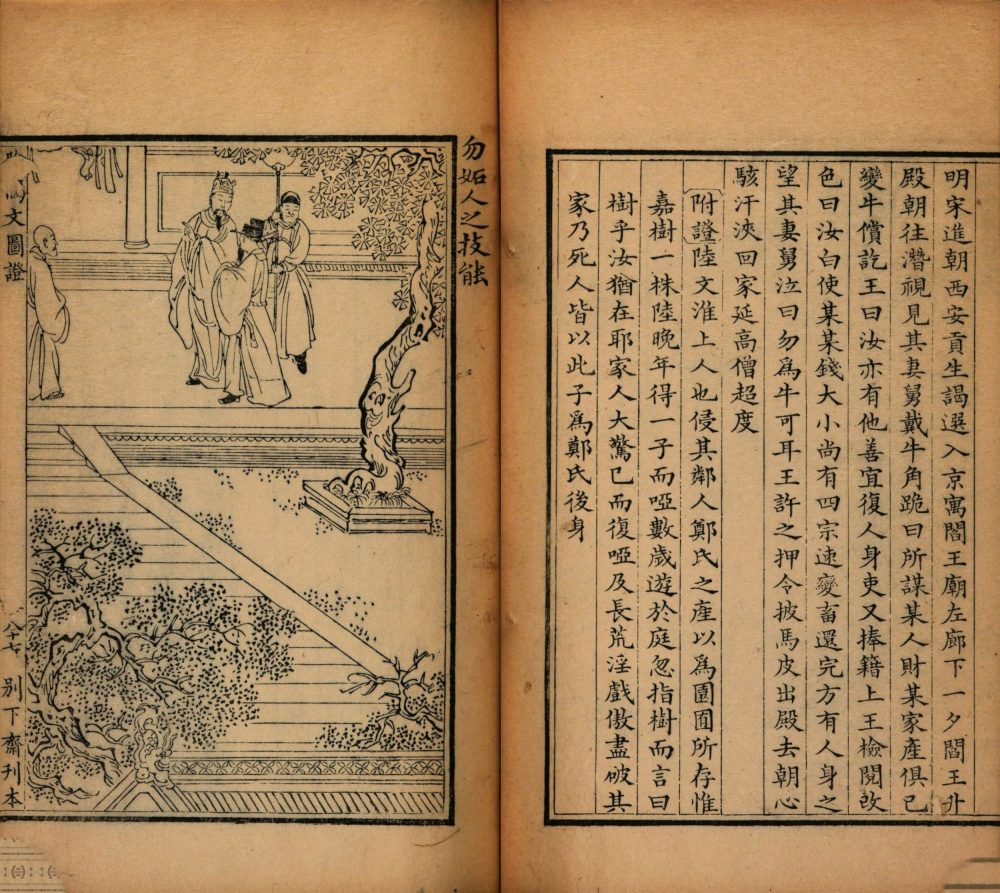 明宋進朝西安貢生謁選入京寓閻王廟左廊下一夕閻王升
殿朝往潛視見其妻舅戴牛角跪曰所謀某人財某家產俱已
變牛償訖王曰汝亦有他善宜復人身吏又捧籍上王檢閱改
色曰汝白使某某錢大小尚有四宗速變畜還完方有人身之
望其妻舅泣曰勿為牛可耳王許之押令披馬皮出殿去朝心
駭汗浹回家延高僧超度
附證陸文淮上人也侵其鄰人鄭氏之產以為園囿所存惟
嘉樹一株陸晚年得一子而啞數歲遊於庭忽指樹而言曰
樹乎汝猶在耶家人大驚已而復啞及長荒淫戲傲盡破其
家乃死人皆以此子為鄭氏後身
勿妬人之技能
文圖證
八十七
別下齋刊本